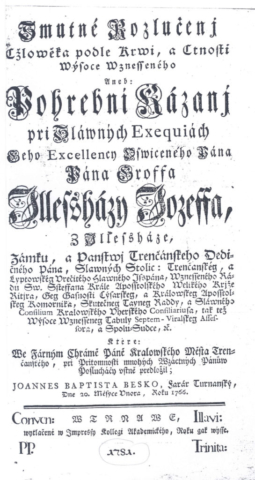 Smutné Rozlučenj
Čžlowěka podle Krwi, a Ctnosti
Wýsoce Wzneſſeného
Aneb:
Pohrebni Kázanj
pri Sláwných Exequiách
Geho Excellency Oswiceného Pána
Pána Groffa
Illeſsházy Jozeffa,
Z Illeſsháze,
Zámku, a Panstwj Trenčánſkeho Dedi-
čného Pána, Slawných Stolic: Trenčanſkég, a
Lyptowſkég Wrčitého Slawného Iſspána, Wzneſſeného Rá-
du Sw. Sſteffana Krále Apoſtolſkého Welikého Krjže
Ritjra, Geg Gaſnoſti Cýſarſkeg, a Králowſkeg Apoſſtol-
ſkeg Komornika, Skutečneg Tayneg Raddy, a Slawného
Conſilium Kralowſkého Vherſkého Conſiliariuſa, tak též
Wýſoce Wzneſſeneg Tabuly Septem-Viralſkeg Aſſeſ-
ſora, a Spolu-Sudce, &c.
Které:
We Fárnjm Chrámě Páně Kralowſkého Měſta Tren-
čanſkého, pri Pritomnoſti mnohých Wzáctných Pánůw
Poſluchačů vſtně predložil;
JOANNES BAPTISTA BESKO, Farár Turnanſký,
Dne 20. Měſyce Vnora, Roku 1766.
Conven: W TRNAWE, Illavi:
wytlačené w Impreſſy Kollegi Akademického, Roku gak wýſſe.
PP. Trinita:
1781.